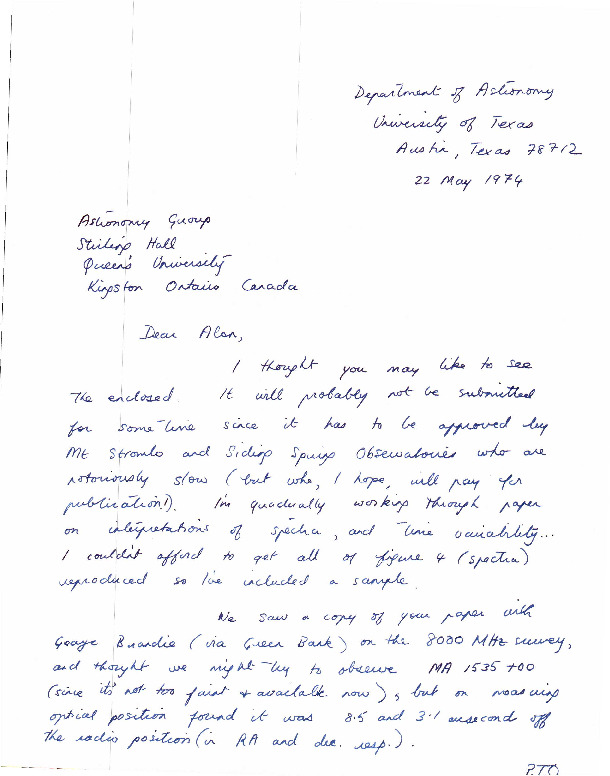 Department of Astronomy
University of Texas
Austin, Texas 78712
22 May 1974
Astronomy Group
Stirling Hall
Queen's University
Kingston Ontario Canada
Dear Alan,
I thought you may like to see
the enclosed. It will probably not be submitted
for some time since it has to be approved by
Mt Stromlo and Siding Spring Observatories who are
notoriously slow (but who, I hope, will pay for
publication!). I'm gradually working through paper
on interpretations of spectra, and time variability...
I couldn't afford to get all of figure 4 (spectra)
reproduced so I've included a sample.
We saw a copy of your paper with
George Brandie (via Green Bank) on the 8000 MHz survey,
and thought we might try to observe MA 1535+00
(since it's not too faint + available now), but on measuring
optical position found it was 8.5 and 3.1 arcsecond off
the radio position (in RA and dec. resp.).
PTO